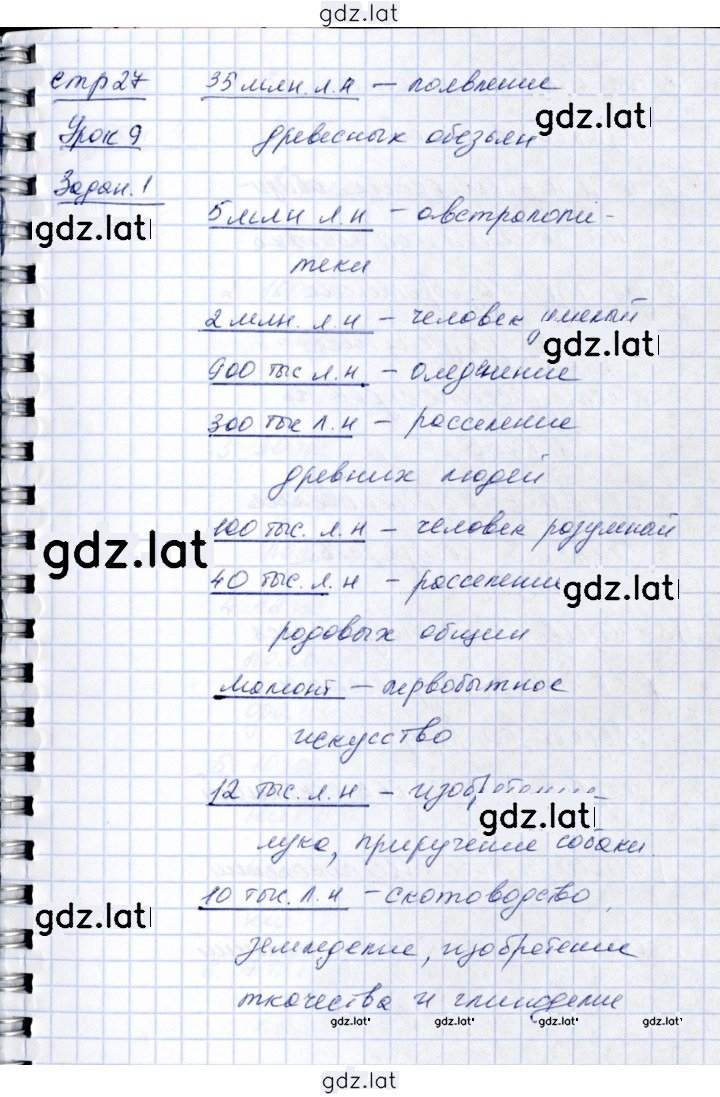 gdz.lat
стр 27 35 млн. л. н – появление
gdz.lat
Урок 9 древесных обезьян
Задан. 1
5 млн л. н – австралопи-
gdz.lat
теки
2 млн. л. н – человек умелый
gdz.lat
900 тыс л. н – оледенение
300 тыс л. н – расселение
древних людей
100 тыс. л. н – человек разумный
gdz.lat
40 тыс. л. н – расселение
gdz.lat
родовых общин
мамонт – первобытное
искусство
12 тыс. л. н – изобретение
gdz.lat
лука, приручение собаки.
10 тыс. л. н – скотоводство,
gdz.lat
земледелие, изобретение
ткачества и глиноделие
gdz.lat gdz.lat gdz.lat gdz.lat
gdz.lat